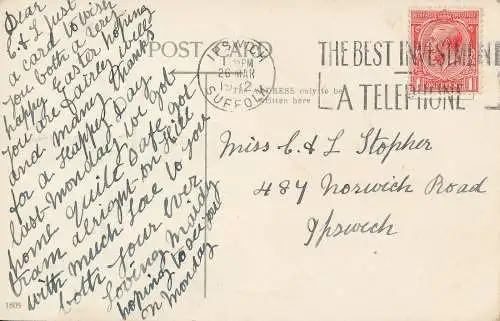 Dear
C & L Just
a card to wish
you both a very
happy Easter hoping
you are fairly well
and many thanks
for a Happy Day
last Monday we got
home quite safe got
tram alright on Hill
with much love to you
both your ever
loving Maidy
hoping to see you
on Monday
1809
POST CARD
IPSWICH
PM
26 MAR
SUFFOLK
THE BEST INVESTMENT
A TELEPHONE
ADDRESS only to be
written here
Miss C & L Stopher
487 Norwich Road
Ipswich